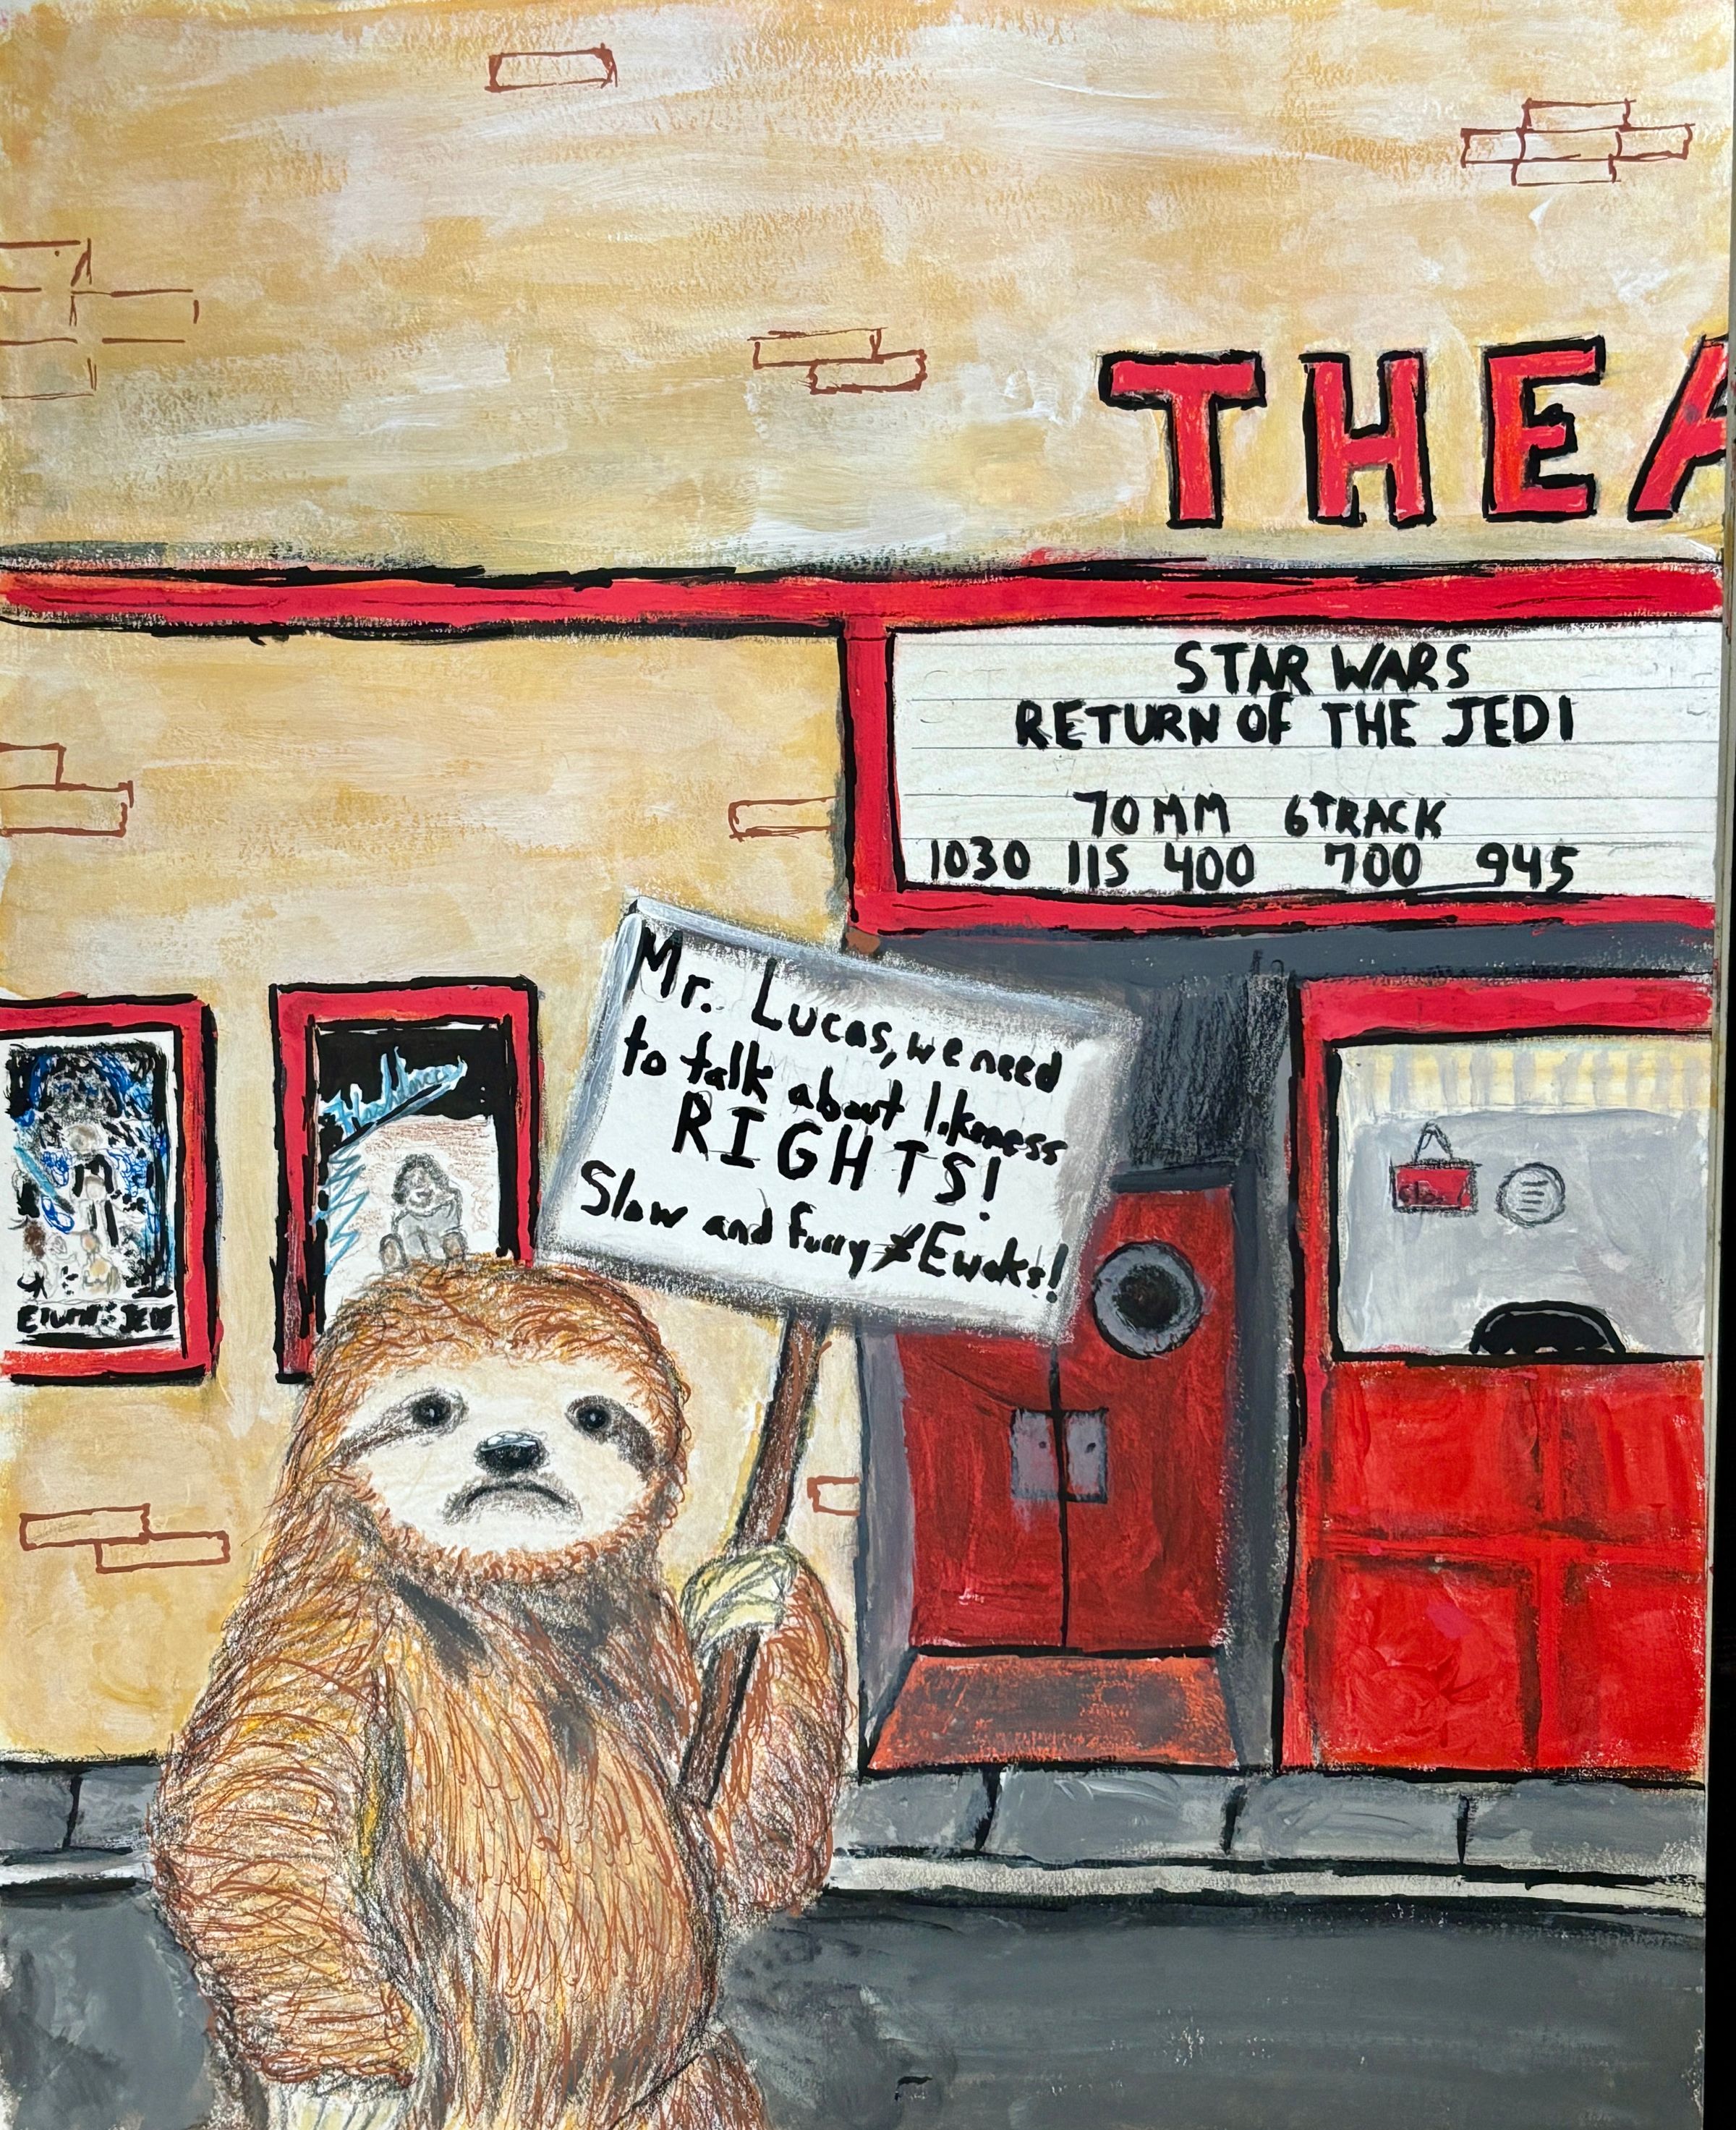 THEA
STAR WARS
RETURN OF THE JEDI
70MM 6TRACK
1030 115 400 700 945
Mr. Lucas, we need
to talk about likeness
RIGHTS!
Slow and furry ≠ Ewoks!
Flashdance